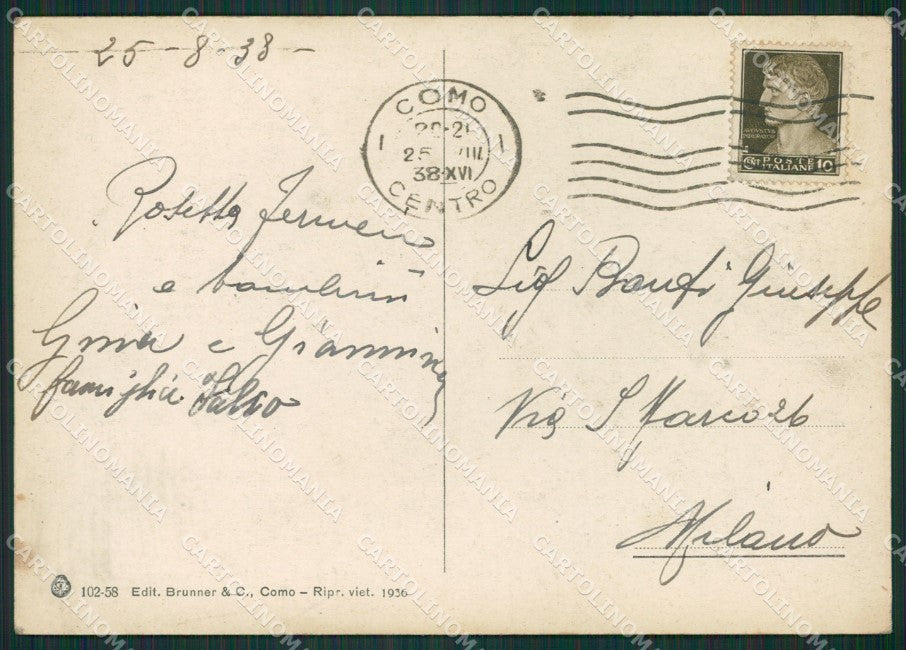 25-8-38-
COMO
20-21
25 VIII
38-XVI
CENTRO
AVGVSTVS
CENT POSTE ITALIANE 10
Rosetta
e bambini
Gina e Giannino
famiglia
Sig Biandi Giuseppe
Via S Marco 26
Milano
102-58 Edit. Brunner & C., Como - Ripr. viet. 1936
CARTOLINOMANIA